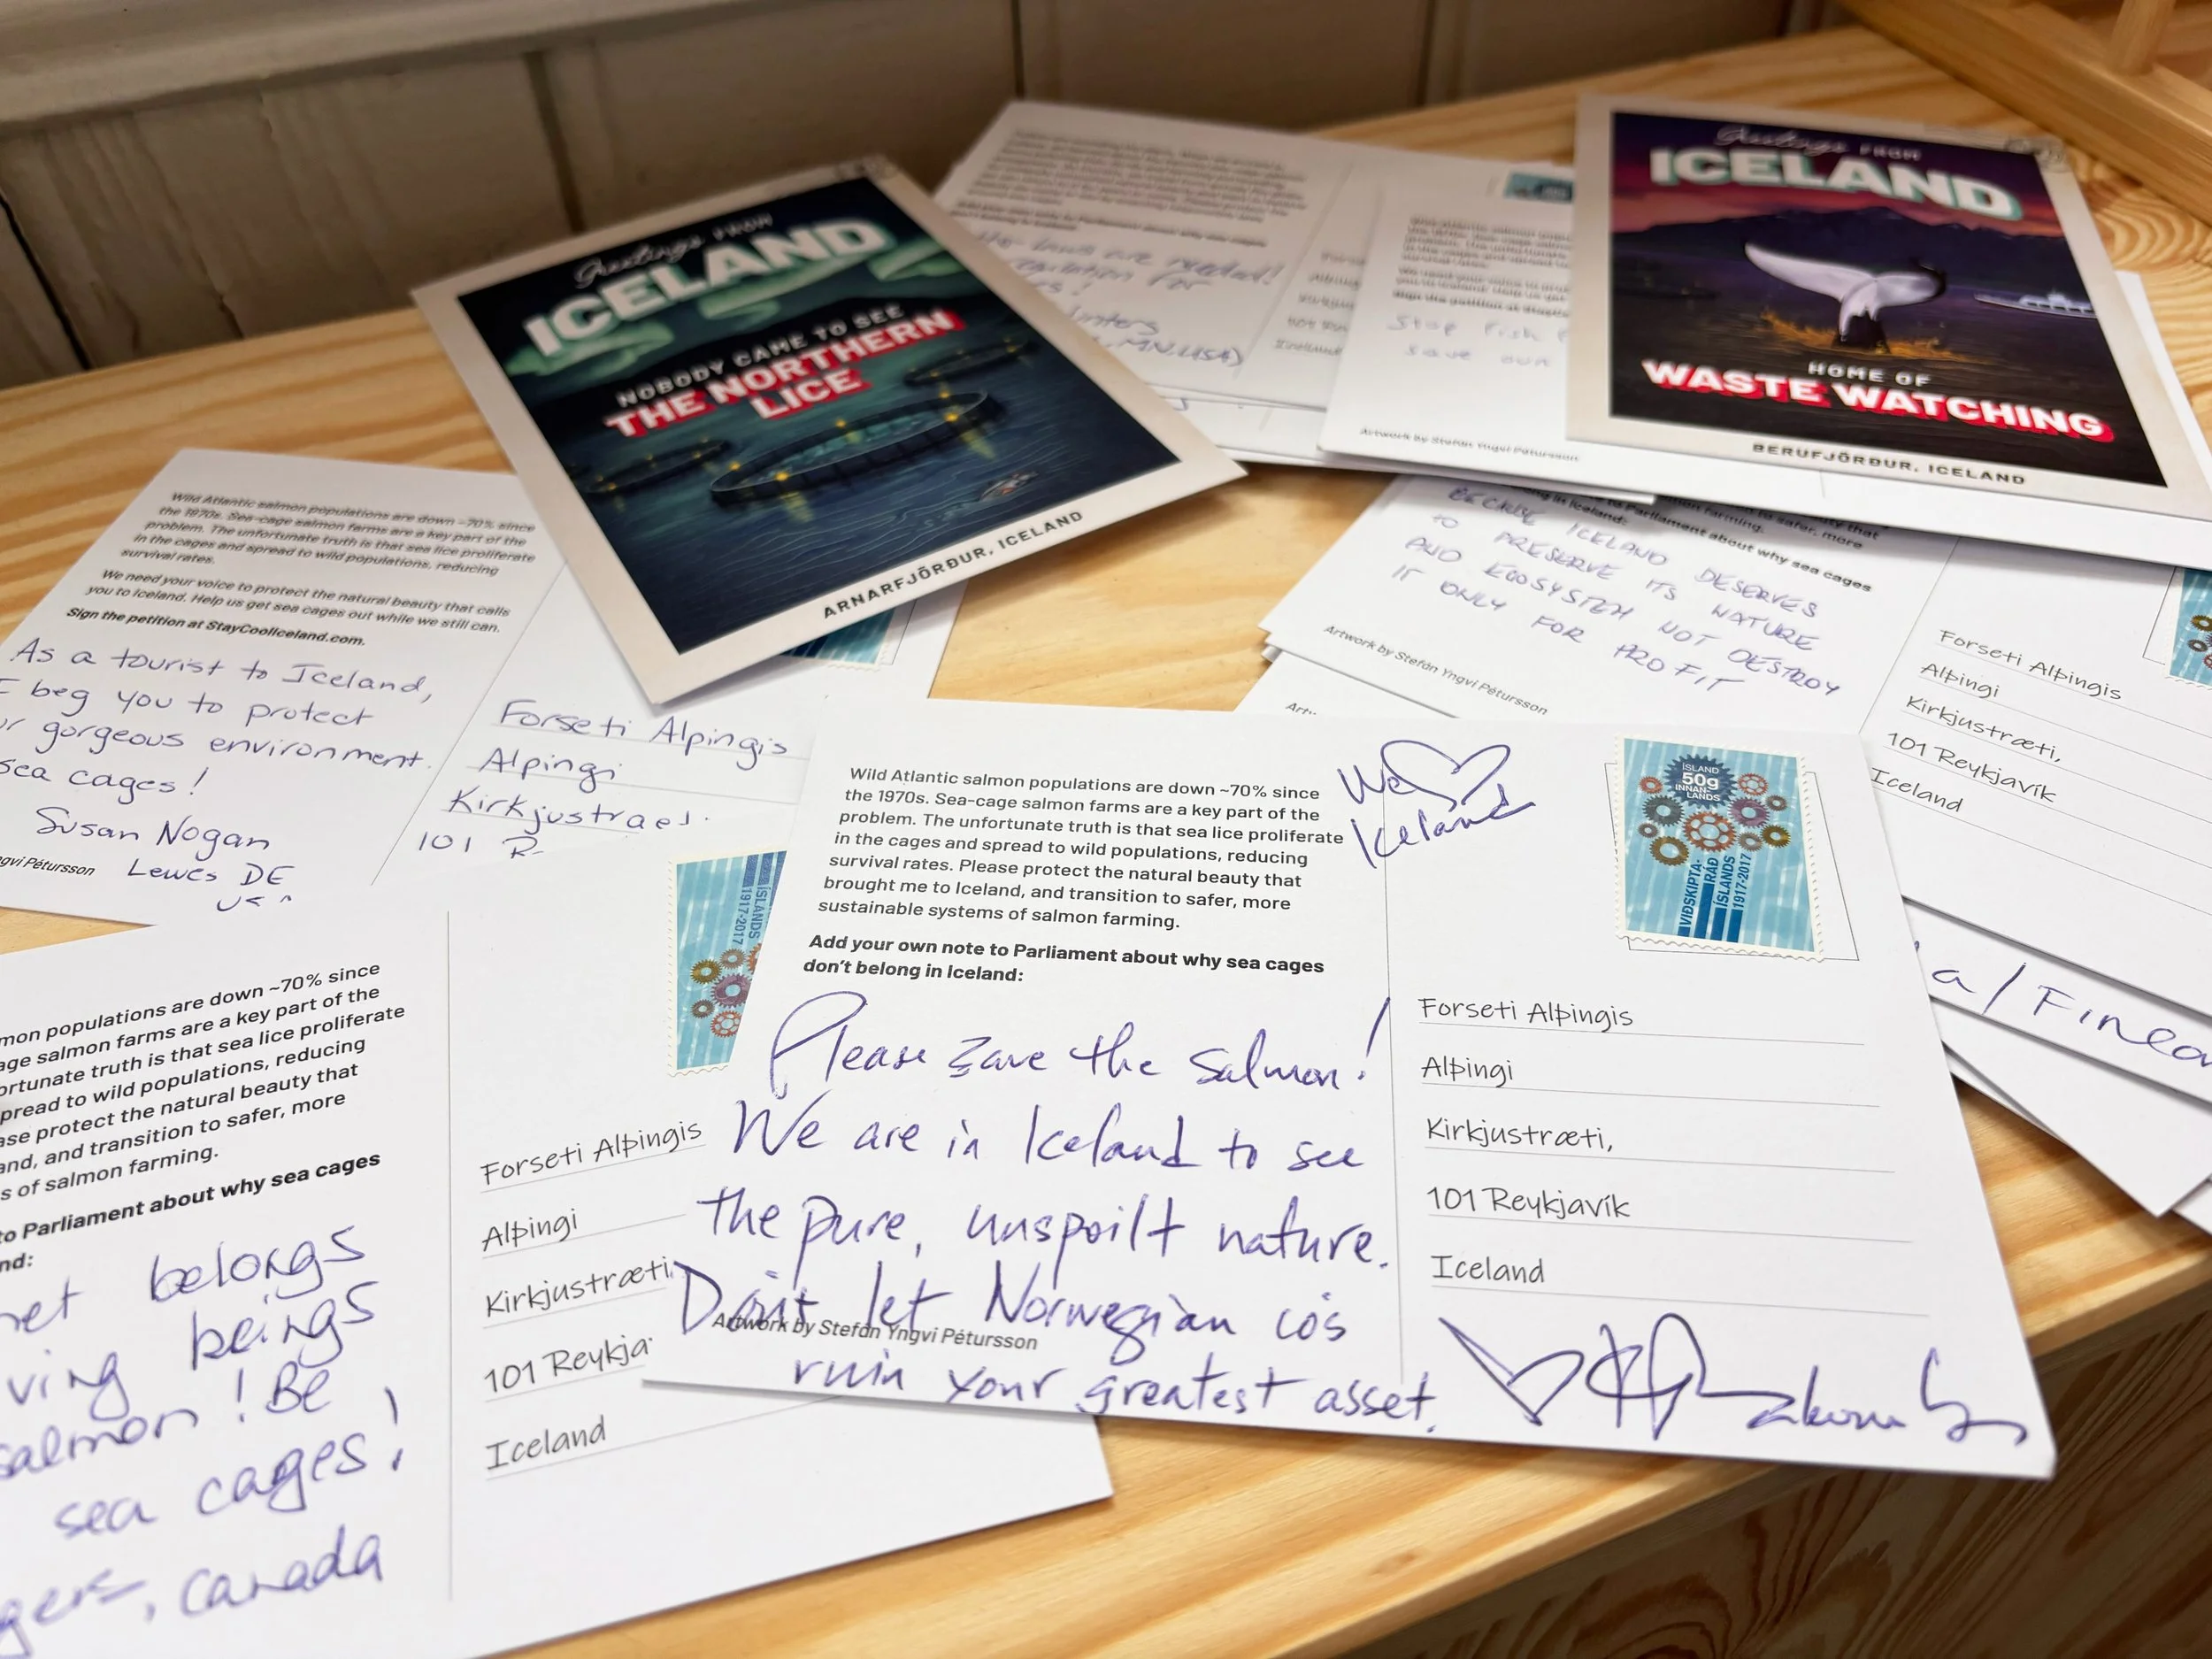 Greetings FROM
ICELAND
NOBODY CAME TO SEE
THE NORTHERN
LICE
ARNARFJÖRÐUR, ICELAND
Greetings FROM
ICELAND
HOME OF
WASTE WATCHING
BERUFJÖRÐUR, ICELAND
laws are needed!
regulation for
MN, USA)
Stop Fish
save our
Artwork by Stefán Yngvi Pétursson
Wild Atlantic salmon populations are down ~70% since
the 1970s. Sea-cage salmon farms are a key part of the
problem. The unfortunate truth is that sea lice proliferate
in the cages and spread to wild populations, reducing
survival rates.
We need your voice to protect the natural beauty that calls
you to Iceland. Help us get sea cages out while we still can.
Sign the petition at StayCoolIceland.com.
As a tourist to Iceland,
I beg you to protect
gorgeous environment.
sea cages!
Susan Nogan
Lewes DE
gvi Pétursson
Forseti Alpingis
Alpingi
Kirkjustrae
101 R
to Parliament about why sea cages
in Iceland:
BECAUSE ICELAND DESERVES
TO PRESERVE ITS NATURE
AND ECOSYSTEM NOT DESTROY
IT ONLY FOR PROFIT
Artwork by Stefán Yngvi Pétursson
Forseti Alþingis
Alþingi
Kirkjustræti,
101 Reykjavík
Iceland
Wild Atlantic salmon populations are down ~70% since
the 1970s. Sea-cage salmon farms are a key part of the
problem. The unfortunate truth is that sea lice proliferate
in the cages and spread to wild populations, reducing
survival rates. Please protect the natural beauty that
brought me to Iceland, and transition to safer, more
sustainable systems of salmon farming.
Add your own note to Parliament about why sea cages
don't belong in Iceland:
We
Iceland
Please save the salmon!
We are in Iceland to see
the pure, unspoilt nature.
Don't let Norwegian co's
ruin your greatest asset.
Artwork by Stefán Yngvi Pétursson
ÍSLAND
50g
INNAN-
LANDS
VIÐSKIPTA-
RÁÐ
ÍSLANDS
1917-2017
Forseti Alþingis
Alþingi
Kirkjustræti,
101 Reykjavík
Iceland
mon populations are down ~70% since
age salmon farms are a key part of the
ortunate truth is that sea lice proliferate
pread to wild populations, reducing
ase protect the natural beauty that
and, and transition to safer, more
s of salmon farming.
to Parliament about why sea cages
nd:
net belongs
ving beings
salmon! Be
sea cages!
gers, Canada
ÍSLANDS
1917-2017
Forseti Alþingis
Alþingi
Kirkjustræti,
101 Reykja
Iceland
a / Finea